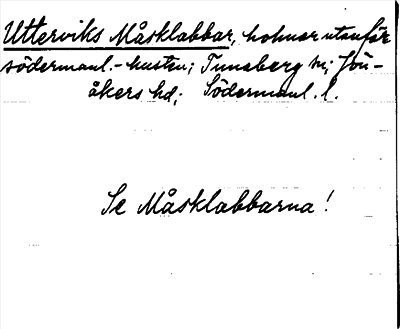 Utterviks Måsklabbar, holmar utanför
södermanl.-kusten; Tunaberg sn; Jön-
åkers hd; Södermanl. l.
Se Måsklabbarna!